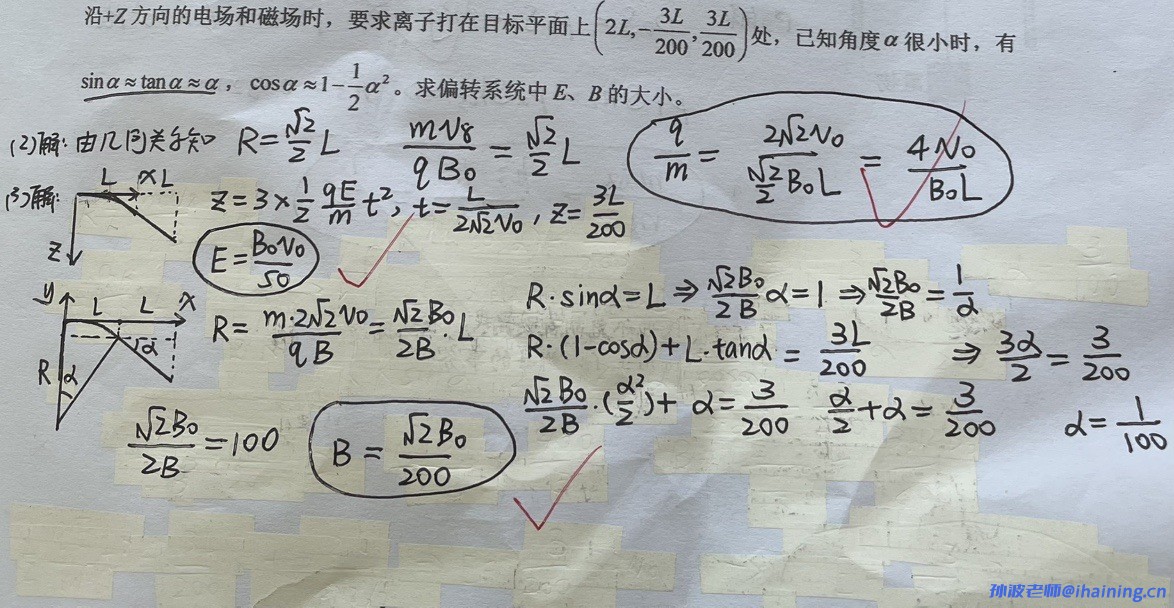 沿+Z方向的电场和磁场时，要求离子打在目标平面上(2L,-3L/200,3L/200)处，已知角度α很小时，有
sinα≈tanα≈α，cosα≈1-1/2α²。求偏转系统中E、B的大小。
(2)解：由几何关系知 R=√2/2 L mv8/qB₀=√2/2 L q/m=2√2v₀/(√2/2 B₀L)=4v₀/B₀L
(3)解: L x L Z
Z=3×1/2 qE/m t², t=L/2√2v₀, Z=3L/200
E=B₀v₀/50
y L L x R α α
R=m·2√2v₀/qB=√2B₀/2B·L R·sinα=L⇒√2B₀/2B α=1⇒√2B₀/2B=1/α
R·(1-cosα)+L·tanα=3L/200 ⇒3α/2=3/200
√2B₀/2B·(α²/2)+α=3/200 α/2+α=3/200 α=1/100
√2B₀/2B=100 B=√2B₀/200
孙波老师@ihaining.cn